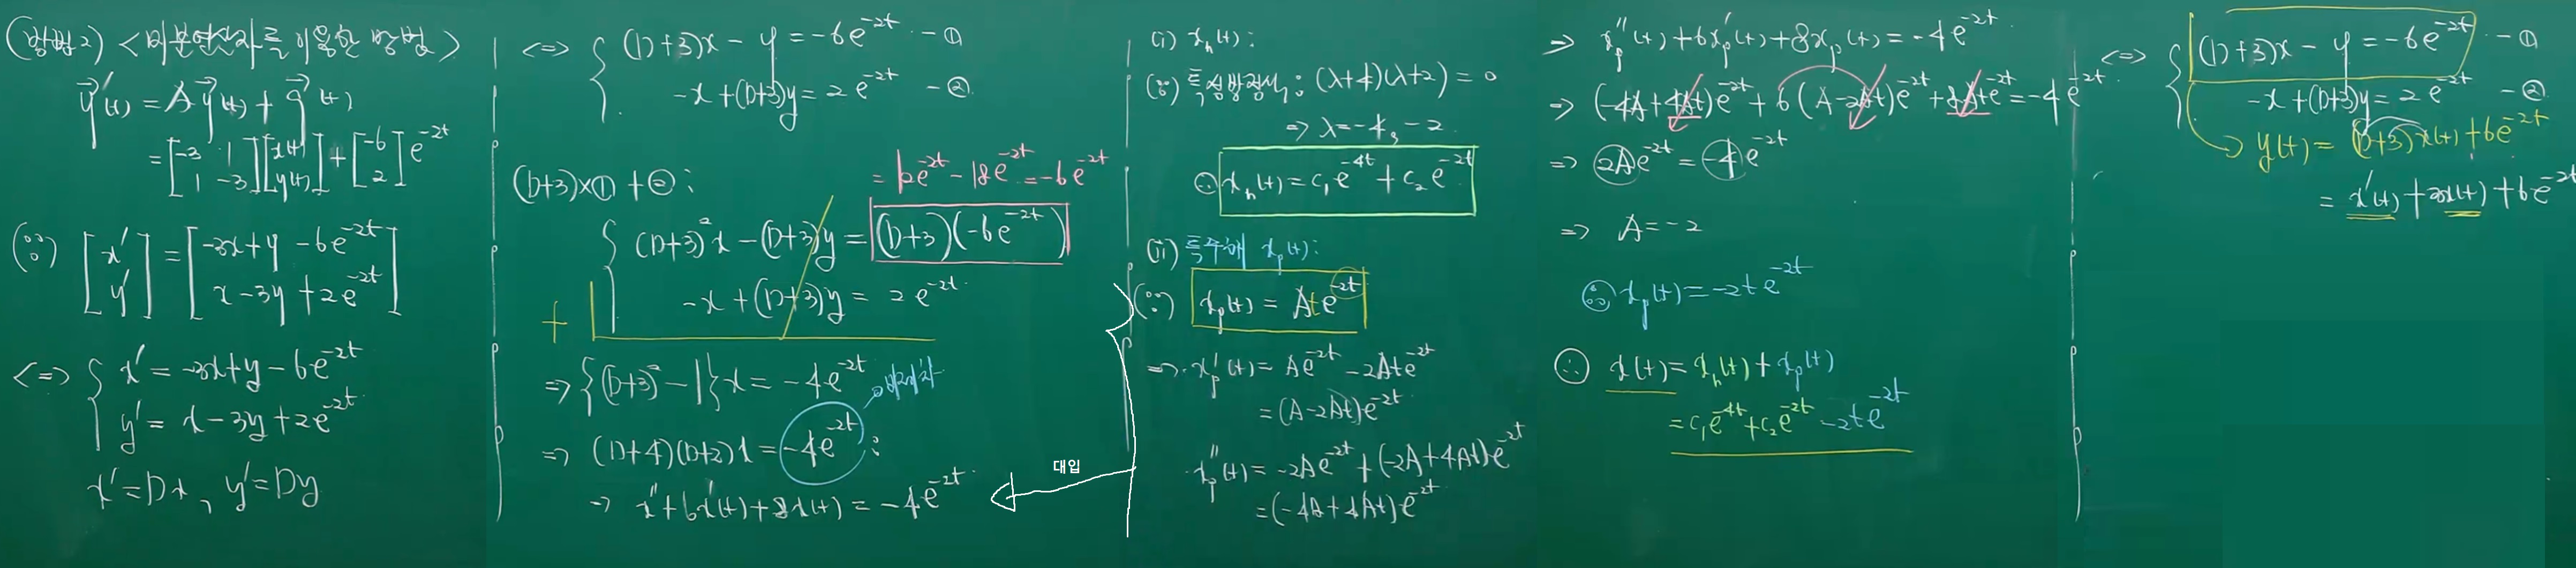 (방법2) <미분연산자를 이용한 방법>
y⃗'(t) = A y⃗(t) + g⃗(t)
= [-3 1; 1 -3][x(t); y(t)] + [-6; 2] e^{-2t}
(∵) [x'; y'] = [-3x+y -6e^{-2t}; x-3y+2e^{-2t}]
<=> { x' = -3x+y-6e^{-2t}
y' = x-3y+2e^{-2t}
x'=Dx, y'=Dy
<=> { (D+3)x - y = -6e^{-2t} -①
-x+(D+3)y = 2e^{-2t} -②
(D+3)×①+②:
= 12e^{-2t} - 18e^{-2t} = -6e^{-2t}
(D+3)²x - (D+3)y = (D+3)(-6e^{-2t})
+ -x + (D+3)y = 2e^{-2t}
=> {(D+3)²-1}x = -4e^{-2t}
=> (D+4)(D+2)x = -4e^{-2t} :
=> x''+6x'(t)+8x(t) = -4e^{-2t}
대입
(i) x_h(t):
(∵) 특성방정식: (λ+4)(λ+2) = 0
=> λ=-4, -2
∴ x_h(t) = c₁e^{-4t} + c₂e^{-2t}
(ii) 특수해 x_p(t):
(∵) x_p(t) = Ate^{-2t}
=> x_p'(t) = Ae^{-2t} - 2Ate^{-2t}
= (A-2At)e^{-2t}
x_p''(t) = -2Ae^{-2t} + (-2A+4At)e^{-2t}
= (-4A+4At)e^{-2t}
=> x_p''(t)+6x_p'(t)+8x_p(t) = -4e^{-2t}
=> (-4A+4At)e^{-2t} + 6(A-2At)e^{-2t} + 8Ate^{-2t} = -4e^{-2t}
=> 2Ae^{-2t} = -4e^{-2t}
=> A=-2
∴ x_p(t) = -2te^{-2t}
∴ x(t) = x_h(t) + x_p(t)
= c₁e^{-4t}+c₂e^{-2t} -2te^{-2t}
<=> { (D+3)x - y = -6e^{-2t} -①
-x+(D+3)y = 2e^{-2t} -②
y(t) = (D+3)x(t) + 6e^{-2t}
= x'(t) + 3x(t) + 6e^{-2t}